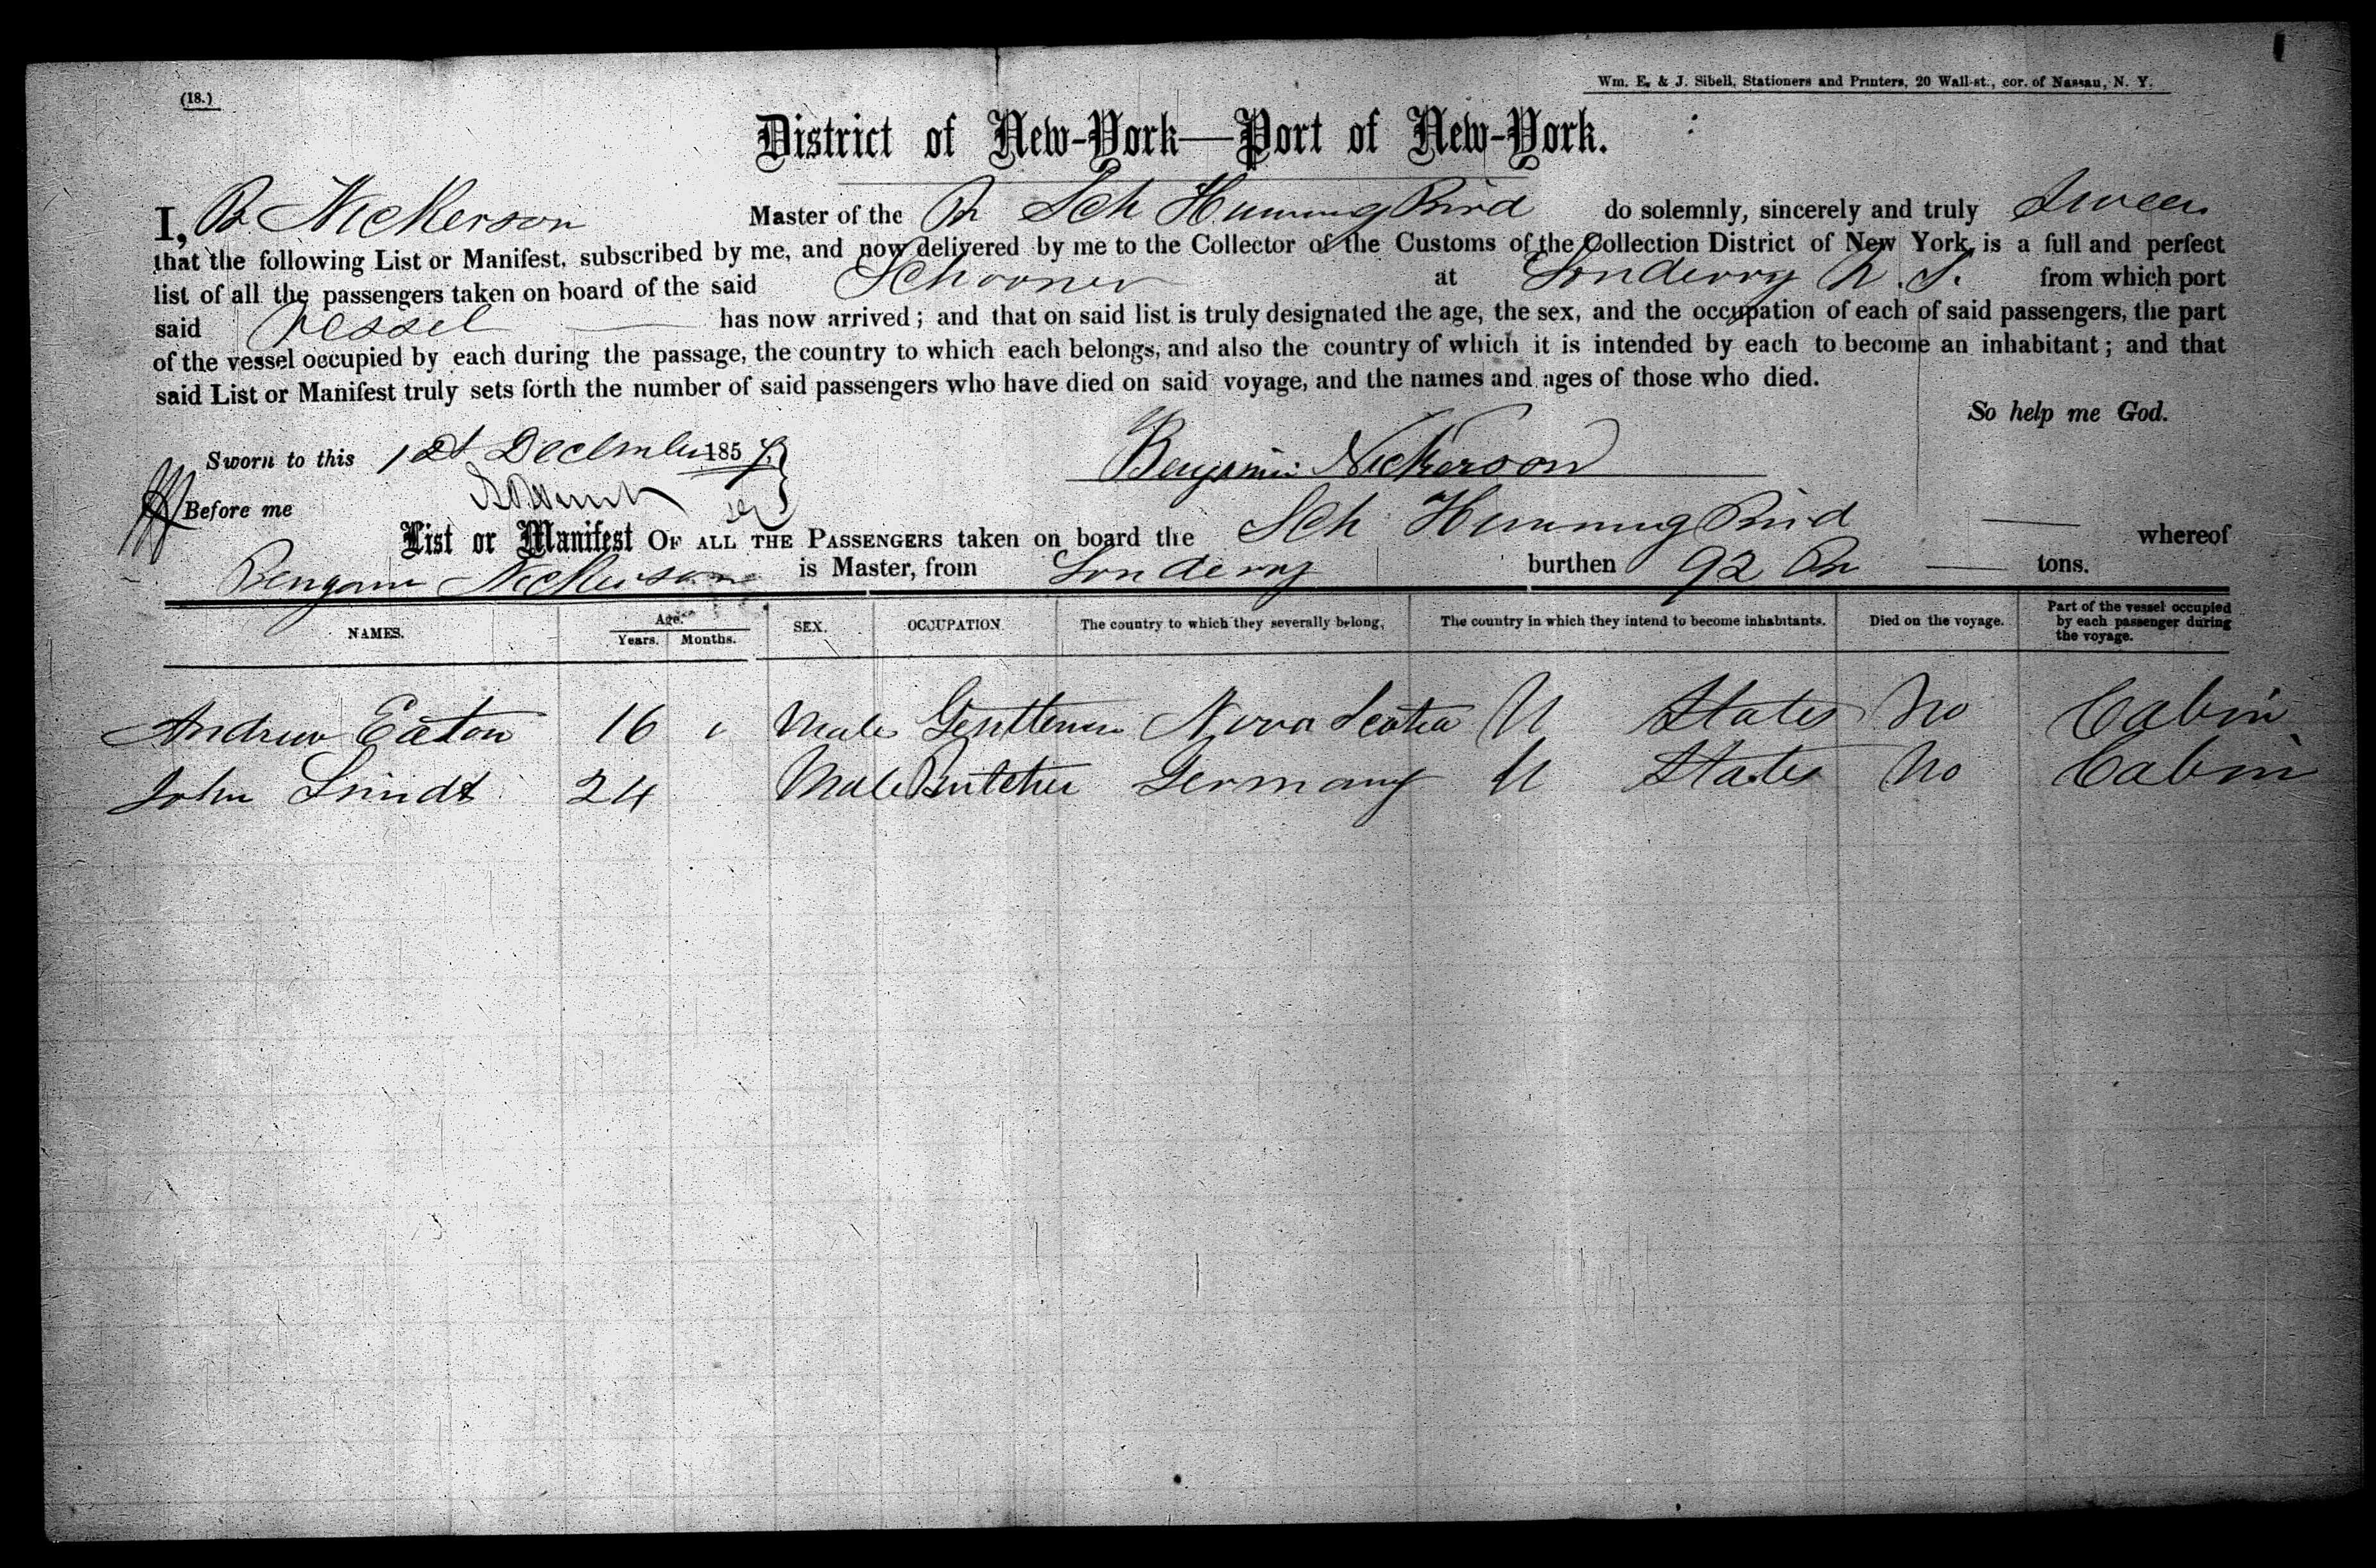 (18.)
Wm. E. & J. Sibell, Stationers and Printers, 20 Wall-st., cor. of Nassau, N. Y.
District of New-York—Port of New-York.
I, B Nickerson Master of the Br Sch Humming Bird do solemnly, sincerely and truly Swear
that the following List or Manifest, subscribed by me, and now delivered by me to the Collector of the Customs of the Collection District of New York, is a full and perfect
list of all the passengers taken on board of the said Schooner at Londerry N.S. from which port
said Vessel has now arrived; and that on said list is truly designated the age, the sex, and the occupation of each of said passengers, the part
of the vessel occupied by each during the passage, the country to which each belongs, and also the country of which it is intended by each to become an inhabitant; and that
said List or Manifest truly sets forth the number of said passengers who have died on said voyage, and the names and ages of those who died.
So help me God.
Sworn to this 1st December 1857 Benjamin Nickerson
Before me
List or Manifest OF ALL THE PASSENGERS taken on board the Sch Humming Bird whereof
Bengamn Nickerson is Master, from Londerry burthen 92 tons.
NAMES. Age. Years. Months. SEX. OCCUPATION. The country to which they severally belong. The country in which they intend to become inhabitants. Died on the voyage. Part of the vessel occupied by each passenger during the voyage.
Andrew Eaton 16 Male Gentlemen Nova Scotia U States No Cabin
John Smidt 24 Male Butcher Germany U States No Cabin